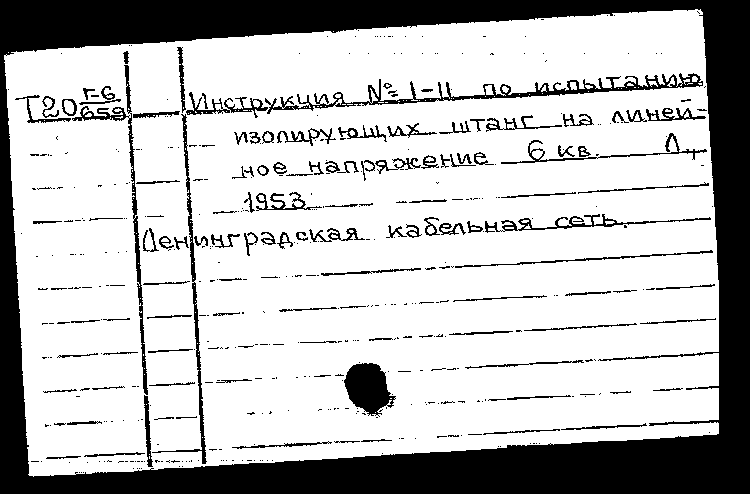 Т20 Г-6/659 Инструкция № I-II по испытанию
изолирующих штанг на линей-
ное напряжение 6 кв. Л.,
1953
Ленинградская кабельная сеть.